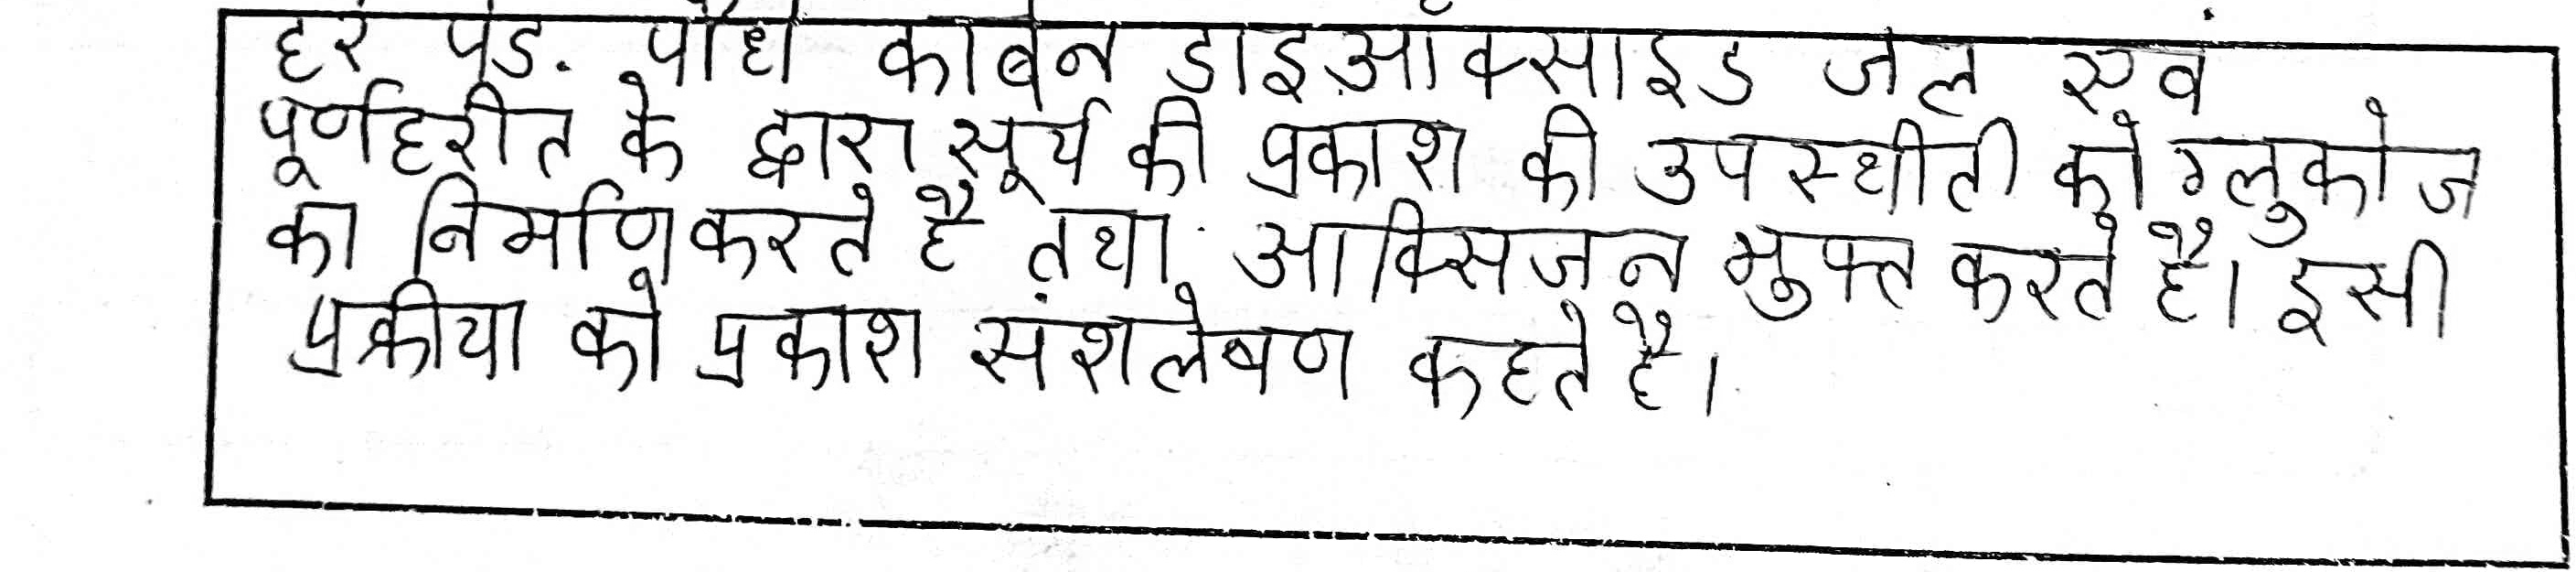 हरे पेड़. पौधे कार्बन डाइऑक्साइड जल एवं
पूर्णहरीत के द्वारा सूर्य की प्रकाश की उपस्थीती को ग्लुकोज
का निर्माण करते है तथा आक्सिजन मुक्त करते है। इसी
प्रक्रीया को प्रकाश संशलेषण कहते है।